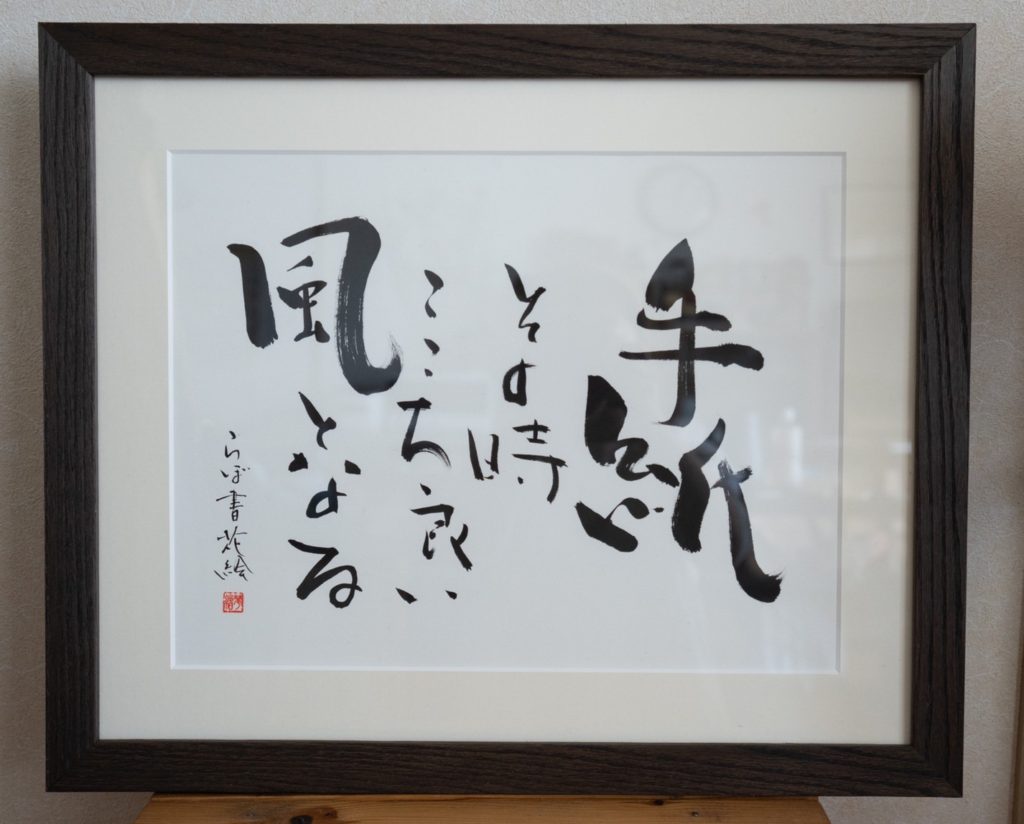 手紙
その時
ここち良い
風となる
らぼ書花絵